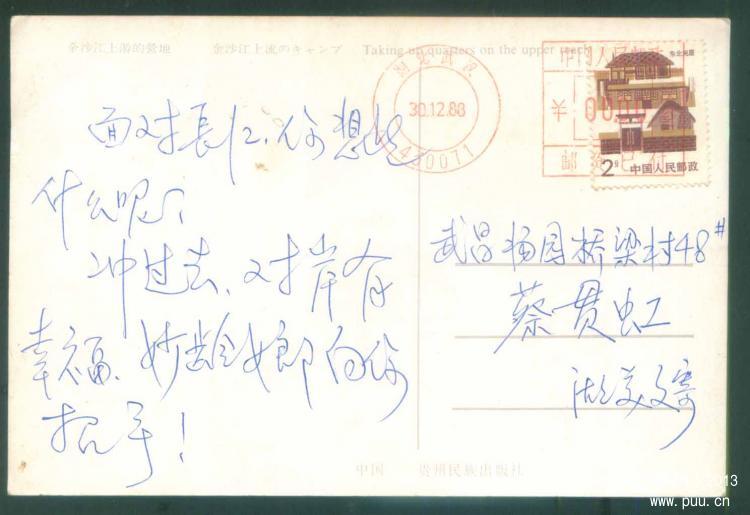 金沙江上游的营地 金沙江上流のキャンプ Taking up quarters on the upper reach
30.12.88
430071
中国人民邮政
¥ 0000
邮资已付
2分 中国人民邮政
面对長江,你想起
什么呢?
冲过去,对岸有
幸福、妙龄女郎向你
招手!
武昌杨园桥梁村48#
蔡贯虹
湖美文寄
中国 贵州民族出版社
www.puu.cn